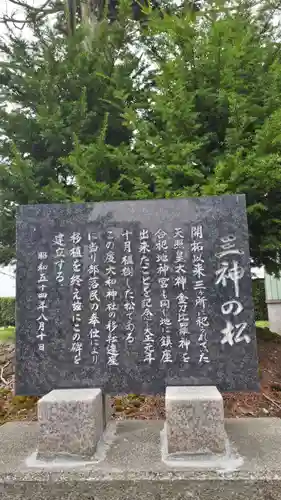 三神の松
開拓以来三ヶ所に祀られてた
天照皇大神 金刀比羅神を
合祀地神宮も同じ地に鎮座
出来たことを記念し大正元年
十月植樹した松である
この度大和神社の移転新築
に当り部落民の奉仕により
移植を終え茲にこの碑を
建立する
昭和五十四年八月十日